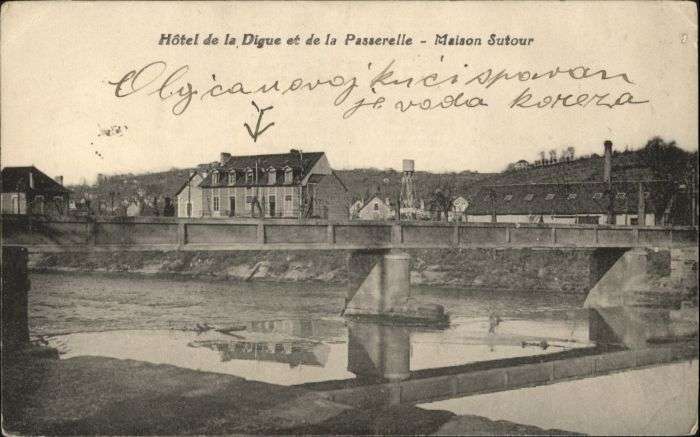 Hôtel de la Digue et de la Passerelle - Maison Sutour
u ovoj kući spavan
je voda Koreza